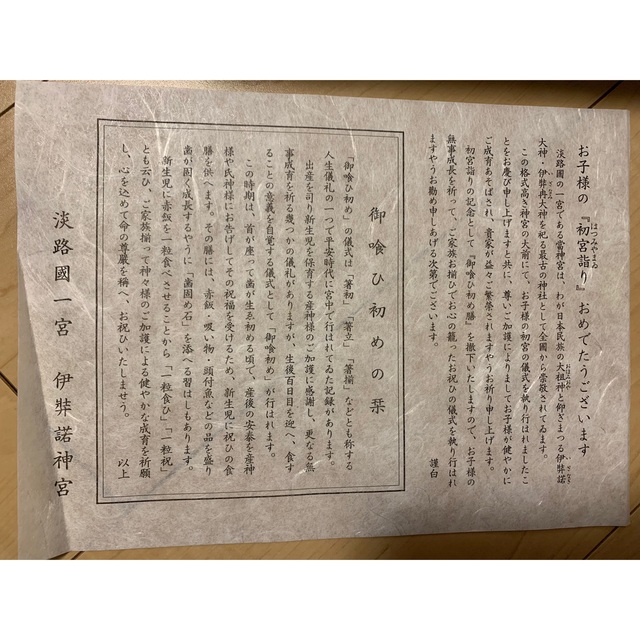 お子様の『初宮詣り』おめでたうございます
はつみやまゐ
淡路國の一宮である當神宮は、わが日本民族の大祖神と仰ぎまつる伊弉諾
おほみおや
いざなぎ
大神・伊弉冉大神を祀る最古の神社として全國から崇敬されてゐます。
いざなみ
この格式高き神宮の大前にて、お子様の初宮の儀式を執り行はれましたこ
とをお慶び申し上げますと共に、尊いご加護によりましてお子様が健やかに
ご成育あそばされ、貴家が益々ご繁榮されますやうお祈り申し上げます。
初宮詣りの記念として『御喰ひ初め膳』を撤下いたしますので、お子様の
無事成長を祈って、ご家族お揃ひでお心の籠ったお祝ひの儀式を執り行はれ
ますやうお勧め申しあげる次第でございます。
謹白
御喰ひ初めの栞
『御喰ひ初め』の儀式は「箸初」「箸立」「箸揃」などとも称する
人生儀礼の一つで平安時代に宮中で行はれてゐた記録があります。
出産を司り新生児を保育する産神様のご加護に感謝し、更なる無
事成育を祈る幾つかの儀礼がありますが、生後百日目を迎へ、食す
ることの意義を自覚する儀式として「御喰初め」が行はれます。
この時期は、首が座って歯が生ゑ初める頃で、産後の安泰を産神
様や氏神様にお告げしてその祝福を受けるため、新生児に祝ひの食
膳を供へます。その膳には、赤飯・吸い物・頭付魚などの品を盛り
歯が固く成長するやうに「歯固め石」を添へる習はしもあります。
新生児に赤飯を一粒食べさせることから「一粒食ひ」「一粒祝」
とも云ひ、ご家族揃って神々様のご加護による健やかな成育を祈願
し、心を込めて命の尊厳を稱へ、お祝ひいたしませう。
以上
淡路國一宮 伊弉諾神宮